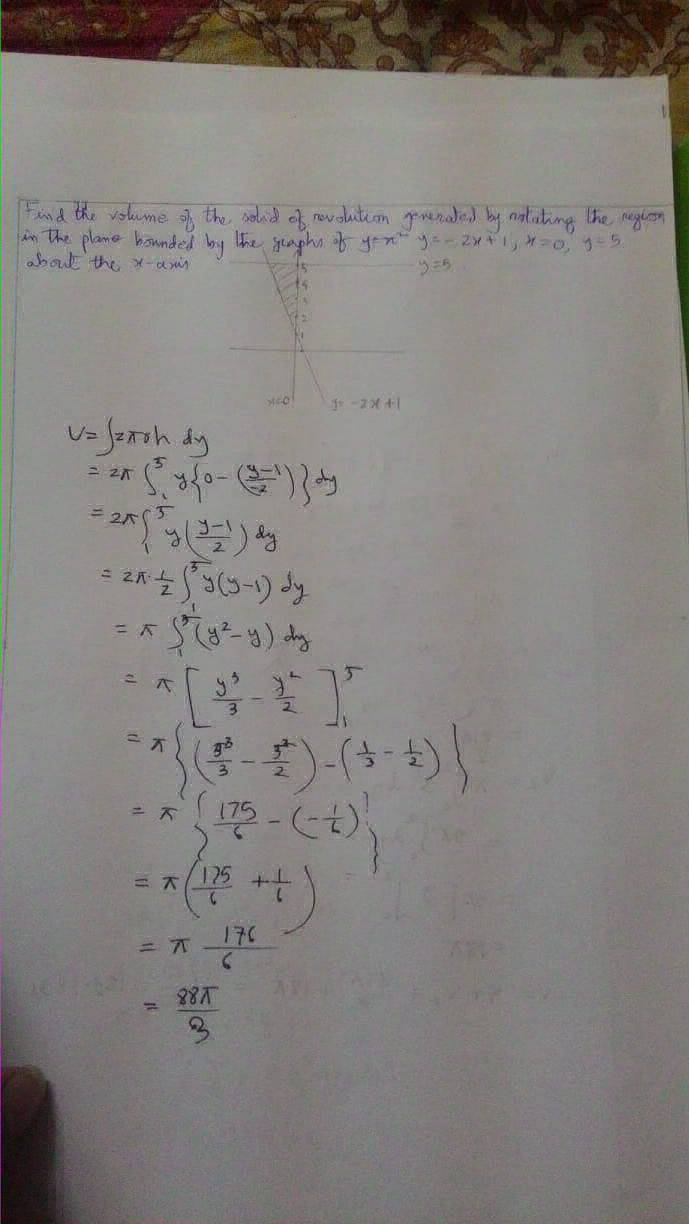 Find the volume of the solid of revolution generated by rotating the region
in the plane bounded by the graphs of y=x² y=-2x+1, x=0, y=5
about the x-axis
y=5
5
4
3
2
1
x=0
y=-2x+1
V=∫2πrh dy
= 2π ∫₁⁵ y{0-(y-1/-2)}dy
= 2π∫₁⁵ y(y-1/2) dy
= 2π·1/2 ∫₁⁵ y(y-1) dy
= π ∫₁⁵ (y²-y) dy
= π [y³/3 - y²/2]₁⁵
= π{(5³/3 - 5²/2) - (1/3 - 1/2)}
= π {175/6 - (-1/6)}
= π(175/6 + 1/6)
= π 176/6
= 88π/3